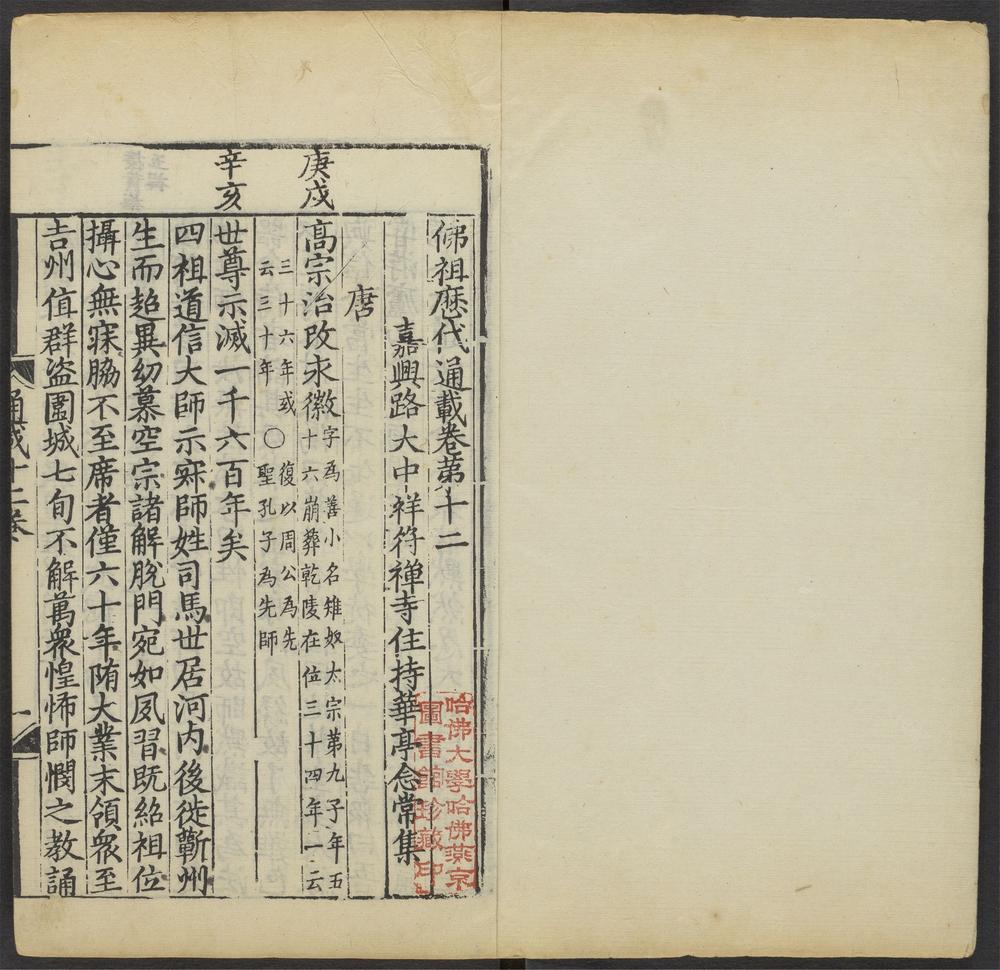 佛祖歷代通載卷第十二
嘉興路大中祥符禪寺住持華亭念常集
唐
庚戌
高宗治改永徽字為善小名雉奴太宗第九子年五
十六崩葬乾陵在位三十四年一云
三十六年或〇復以周公為先
云三十年 聖孔子為先師
辛亥
世尊示滅一千六百年矣
四祖道信大師示寂師姓司馬世居河內後徙蘄州
生而超異幼慕空宗諸解脫門宛如夙習既紹祖位
攝心無寐脇不至席者僅六十年隋大業末領眾至
吉州值群盗圍城七旬不解萬衆惶怖師憫之教誦
通載十二卷
一
哈佛大學哈佛燕京
圖書館珍藏印